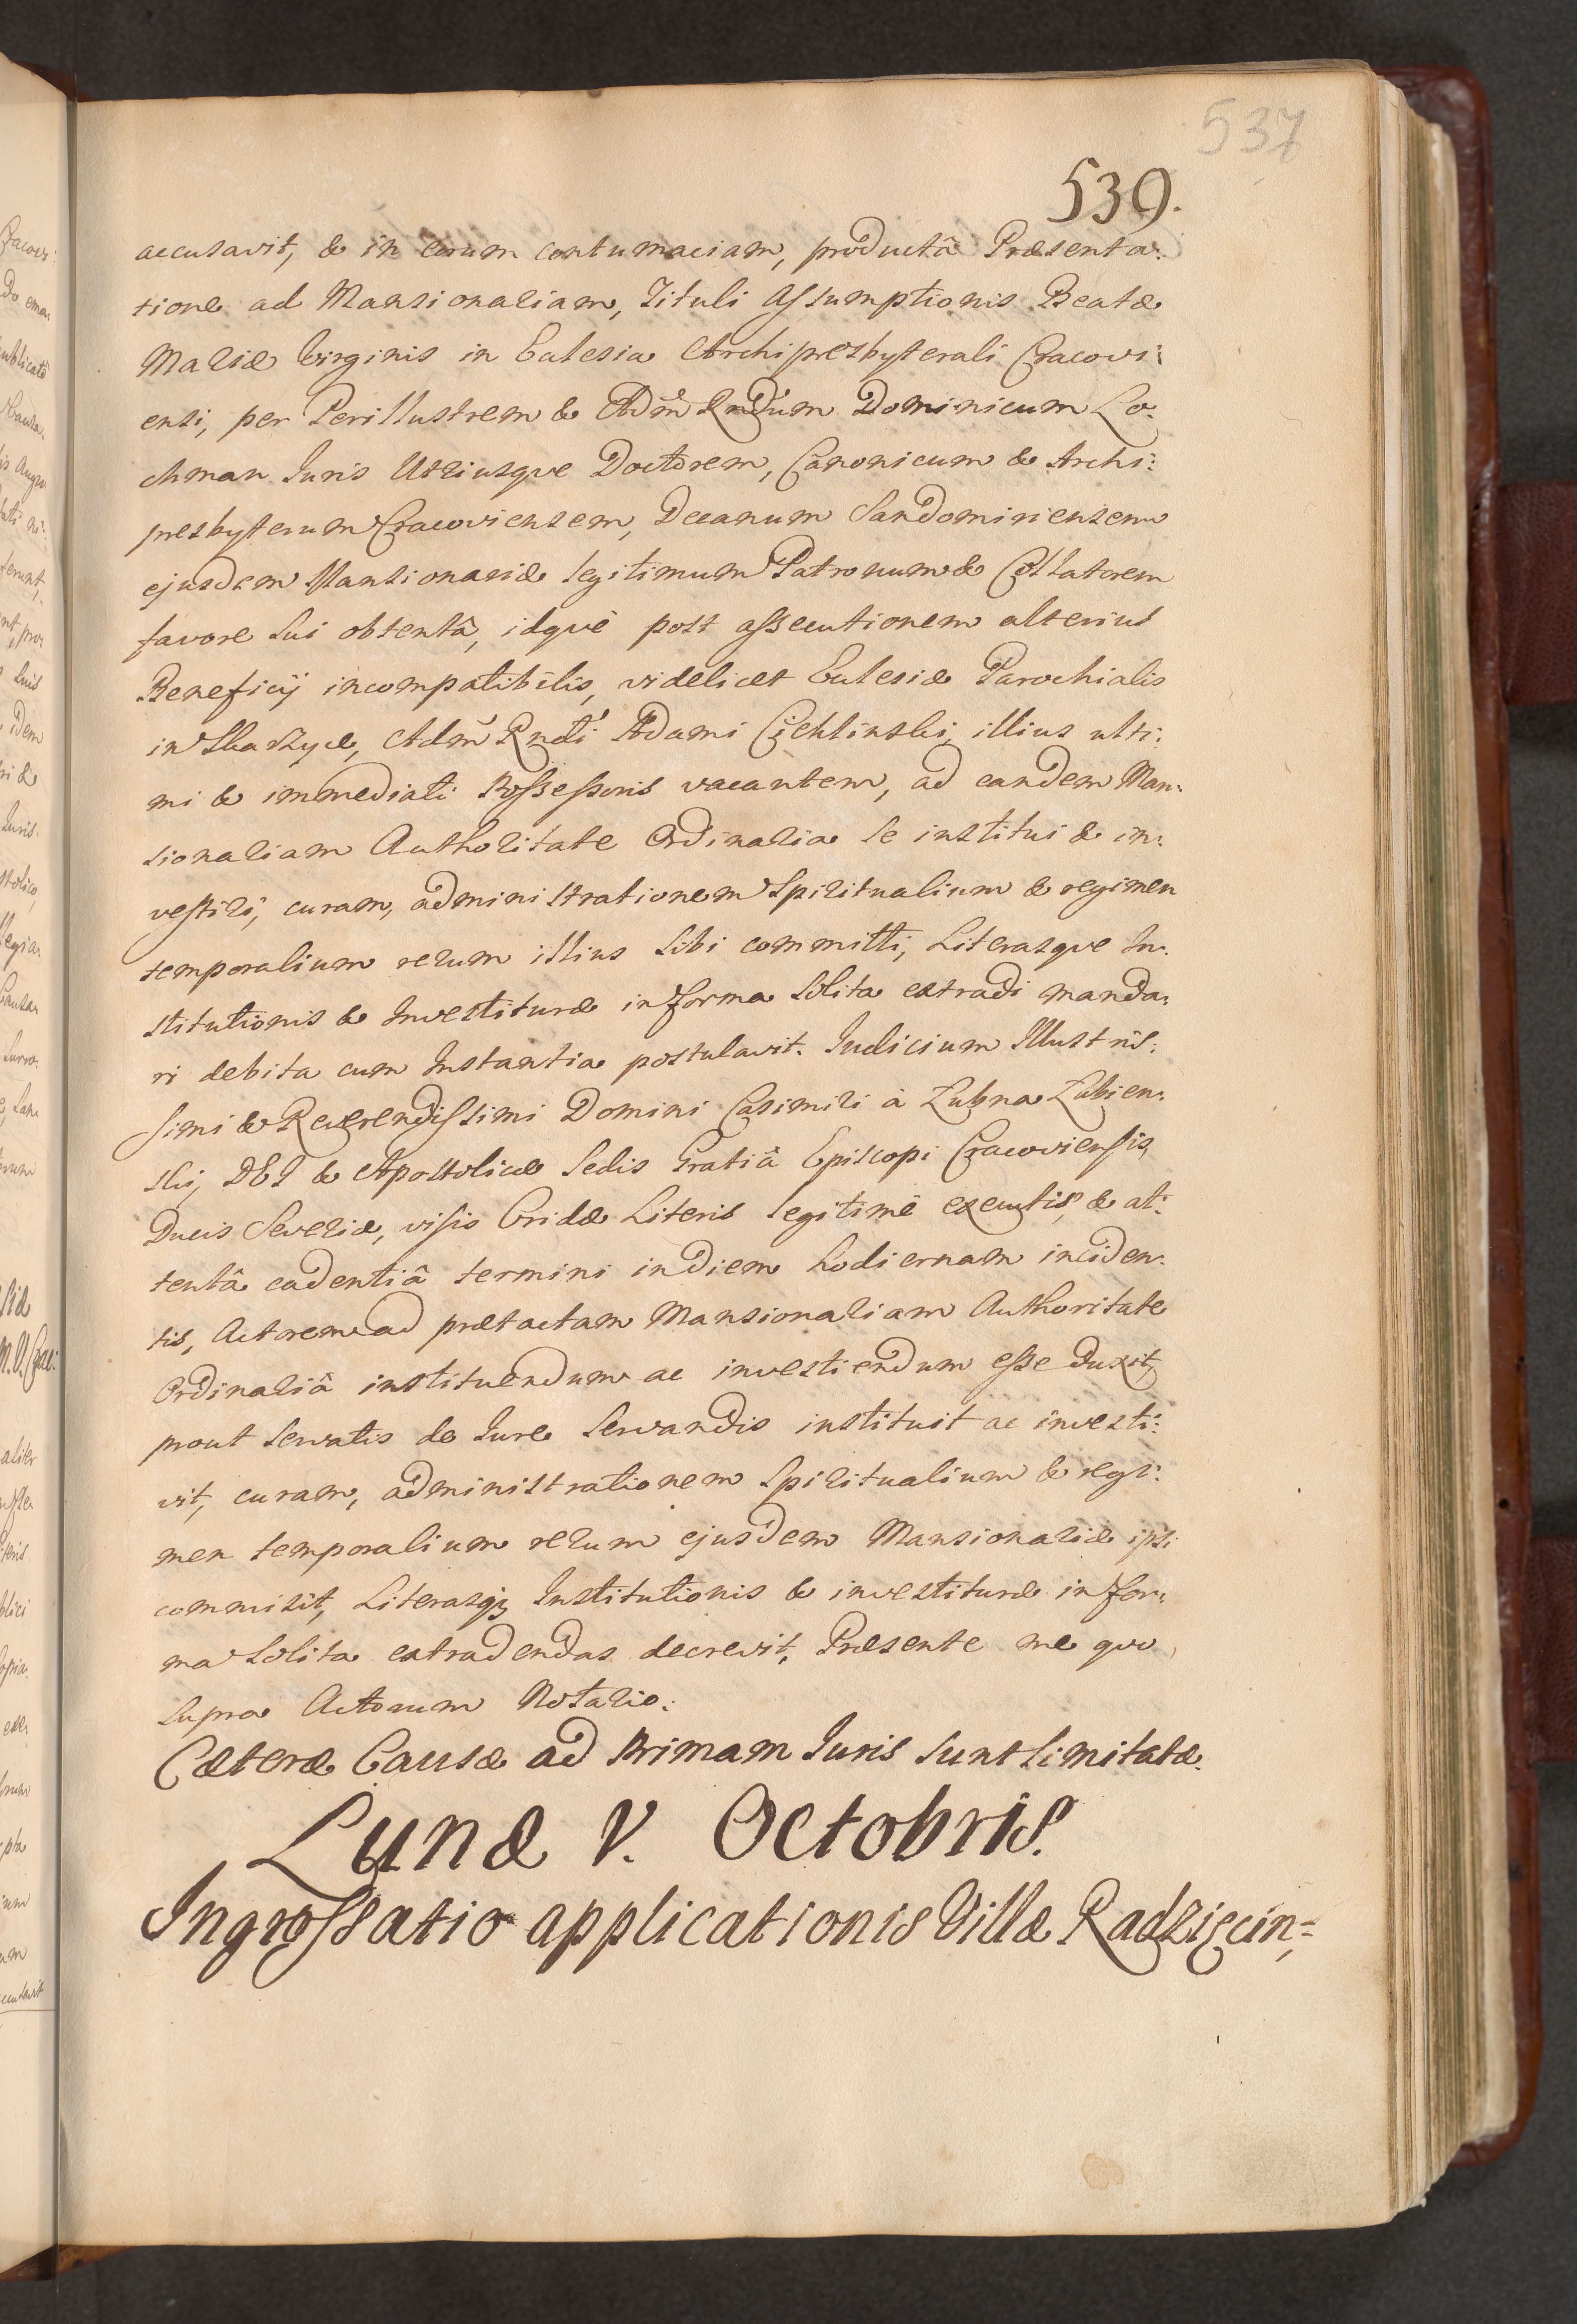 537
539.
accusavit, & in eorum contumaciam, productâ Præsenta:
tione ad Mansionariam, Tituli Assumptionis Beatæ
Mariæ Virginis in Eclesia Archipresbyterali Cracovi:
ensi, per Perillustrem & Adm̃ Rndũm Dominicum Lo:
chman Juris Utriusque Doctorem, Canonicum & Archi:
presbyterum Cracoviensem, Decanum Sandomiriensem
ejusdem Mansionariæ legitimum Patronum & Collatorem
favore sui obtentâ, idquè post assecutionem alterius
Beneficij incompatibilis, videlicet Eclesiæ Parochialis
in Adm̃ Rndi Adami Cichlinski, illius ulti:
mi & immediati Possessoris vacantem, ad eandem Man:
sionariam Authoritate Ordinaria se institui & in:
vestiri, curam, administrationem Spiritualium & regimen
temporalium rerum illius sibi committi, Literasque In:
stitutionis & Investituræ in forma solita extradi manda:
ri debita cum Instantia postulavit. Judicium Illustris:
simi & Reverendissimi Domini Casimiri à Łubna Łubien:
ski, DEI & Apostolicæ Sedis Gratiâ Episcopi Cracoviensis,
Ducis Severiæ, visis Cridæ Literis legitimè executis, & at:
tentâ cadentiâ termini in diem hodiernam inciden:
tis, Actorem ad prætactam Mansionariam Authoritate
Ordinariâ instituendum ac investiendum esse duxit,
prout servatis de Jure servandis instituit ac investi:
vit, curam, administrationem Spiritualium & regi:
men temporalium rerum ejusdem Mansionariæ ipsi
commisit, Literasq; Institutionis & investituræ in for:
ma solita extradendas decrevit, Præsente me quo
supra Actorum Notario.
Cæteræ Causæ ad Primam Juris sunt limitatæ.
Lunæ V. Octobris.
Ingrossatio applicationis Villæ Radzięcin,=